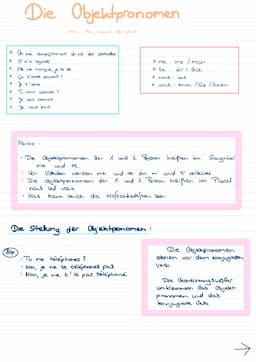 Die Objektpronomen
me, te, nous et vous
Il m'a regardé
Je t'aime
me : mir / mich
te : dir / dich
nous : uns
vous : euch / Sie / Ihnen
Merke :
Die Objektpronomen der 1. und 2. Person heißen im Singular
me und te.
Vor Vokalen werden me und te zu m' und t' verkürzt.
Die Objektpronomen der 1. und 2. Person heißen im Plural
nous und vous.
Vous kann auch die Höflichkeitsform sein.
Die Stellung der Objektpronomen :
Bsp
Tu me téléphones ?
Non, je ne te téléphone pas.
Non, je ne t'ai pas téléphoné.
Die Objektpronomen
stehen vor dem konjugierten
Verb.
Die Verneinungswörter
umklammern das Objekt-
pronomen und das
konjugierte Verb.